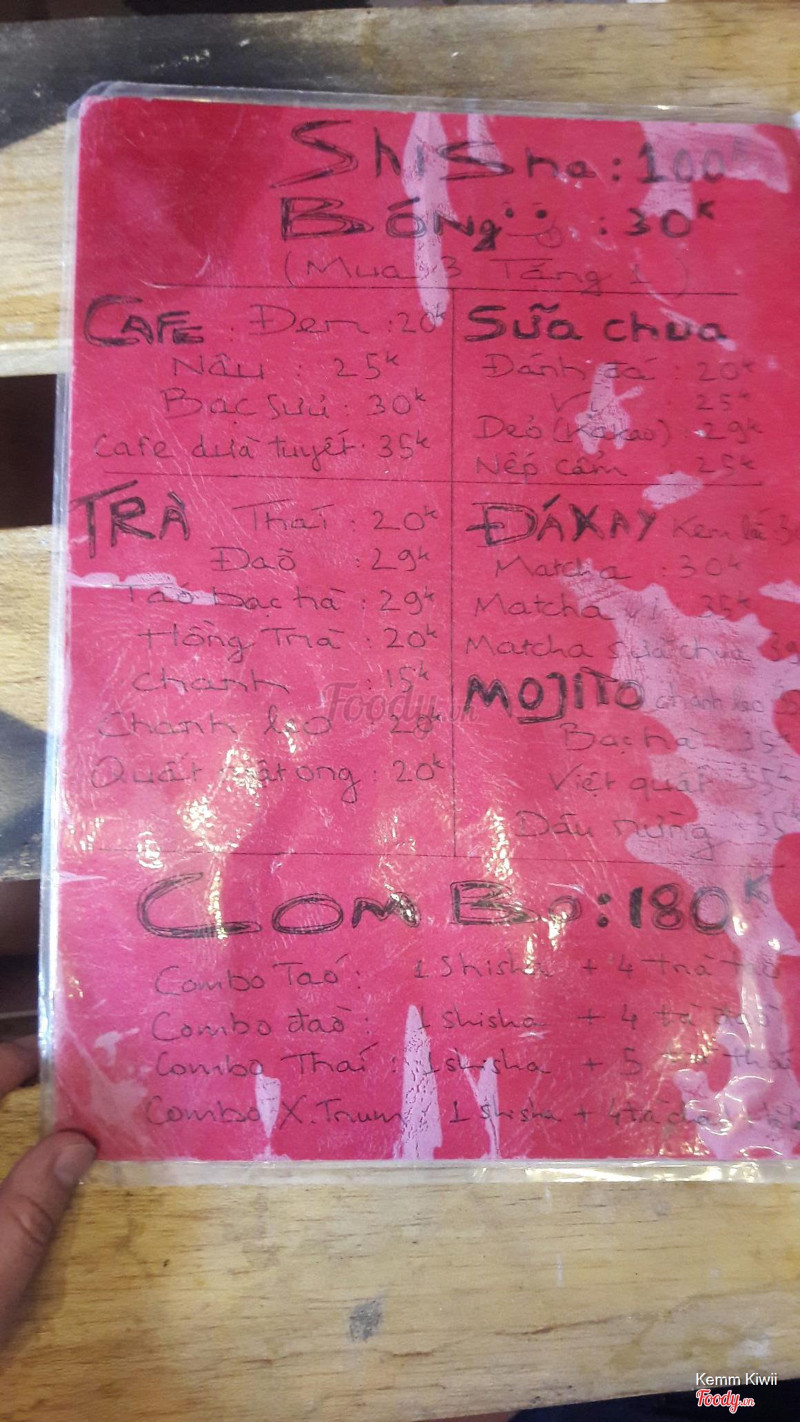 Shisha : 100K
Bóng : 30K
(Mua 3 Tặng 1)
CAFE : Đen : 20K
Nâu : 25K
Bạc sưu : 30K
Cafe dừa tuyết : 35K
TRÀ Thái : 20K
Đào : 29K
Táo bạc hà : 29K
Hồng Trà : 20K
Chanh : 15K
Chanh leo 20K
Quất mật ong : 20K
Sữa chua
Đánh đá : 20K
Vị : 25K
Dẻo (Kakao) : 29K
Nếp cẩm : 25K
ĐÁ XAY Kem
Matcha : 30K
Matcha 35K
Matcha sữa chua 39
MOJITO chanh leo 35
Bạc hà 35K
Việt quất 35K
Dâu rừng : 35K
ComBo : 180K
Combo Táo : 1 Shisha + 4 trà táo
Combo đào : 1 shisha + 4 trà đào
Combo Thái : 1 shisha + 5 trà thái
Combo X.Trum 1 shisha + 4 trà
Foody.vn
Kemm Kiwii
Foody.vn